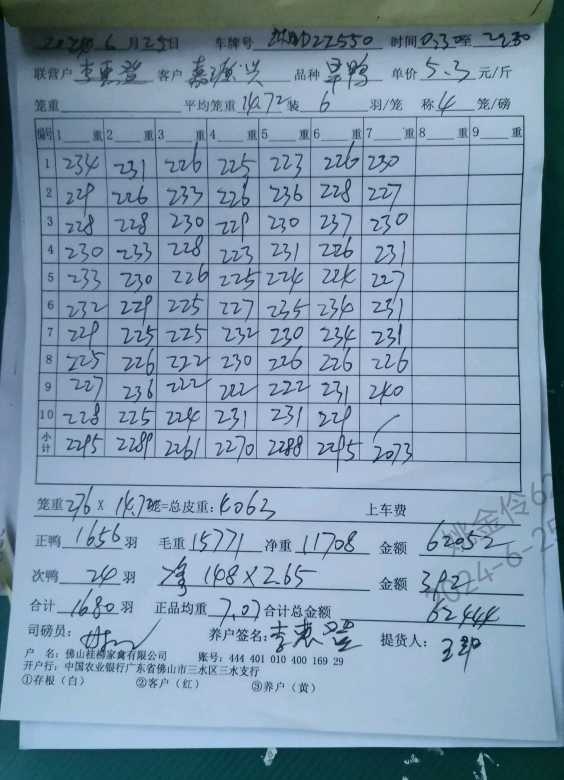 2024年6月25日 车牌号 D22550 时间 0330至 2230
联营户 李惠登 客户 嘉源兴 品种 旱鸭 单价 5.3 元/斤
笼重 平均笼重 14.72 装 6 羽/笼 称 4 笼/磅
编号 1 重 2 重 3 重 4 重 5 重 6 重 7 重 8 重 9 重
1 234 231 226 225 223 226 230
2 229 226 233 226 236 228 227
3 228 228 230 229 230 237 230
4 230 233 228 223 231 226 231
5 233 230 226 225 224 224 227
6 232 229 225 227 235 234 231
7 229 225 225 232 230 234 231
8 225 226 222 230 226 226 226
9 227 236 222 222 222 231 240
10 228 225 224 231 231 229 /
小计 2295 2289 2261 2270 2288 2295 2073
笼重 276 X 14.72 笼=总皮重: 4063 上车费
正鸭 1656 羽 毛重 15771 净重 11708 金额 62052
次鸭 24 羽 148×2.65 金额 392
合计 1680 羽 正品均重 7.07 合计总金额 62444
司磅员: 养户签名: 李惠登 提货人:
户 名: 佛山桂柳家禽有限公司 账号: 444 401 010 400 169 29
开户行: 中国农业银行广东省佛山市三水区三水支行
①存根(白) ②客户(红) ③养户(黄)
姚金伶62
2024-6-25